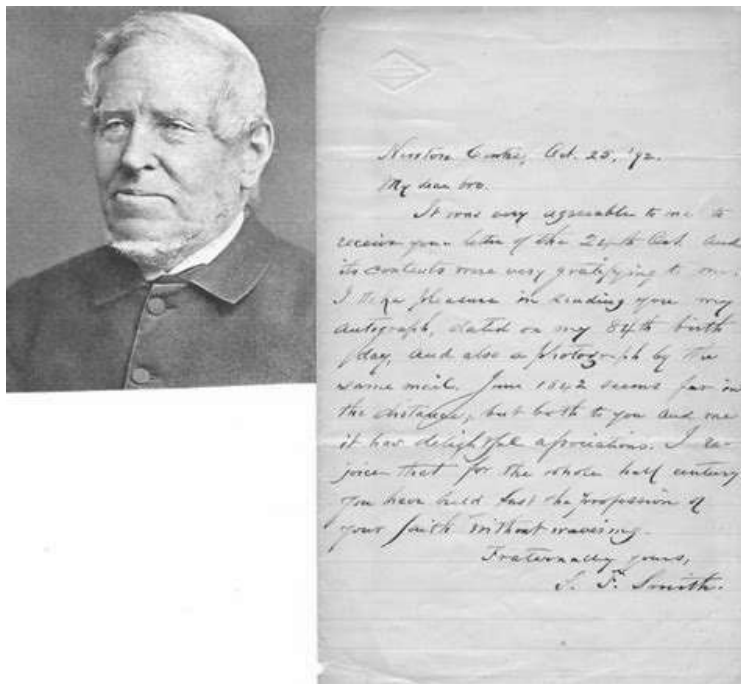 Newton Centre, Oct. 25, '92.
My dear bro.
It was very agreeable to me to
receive your letter of the 24th Oct. and
its contents were very gratifying to me.
I take pleasure in sending you my
autograph, dated on my 84th birth
day, and also a photograph by the
same mail. June 1842 seems far in
the distance, but both to you and me
it has delightful associations. I re-
joice that for the whole half century
you have held fast the profession of
your faith without wavering.
Fraternally yours,
S. F. Smith.